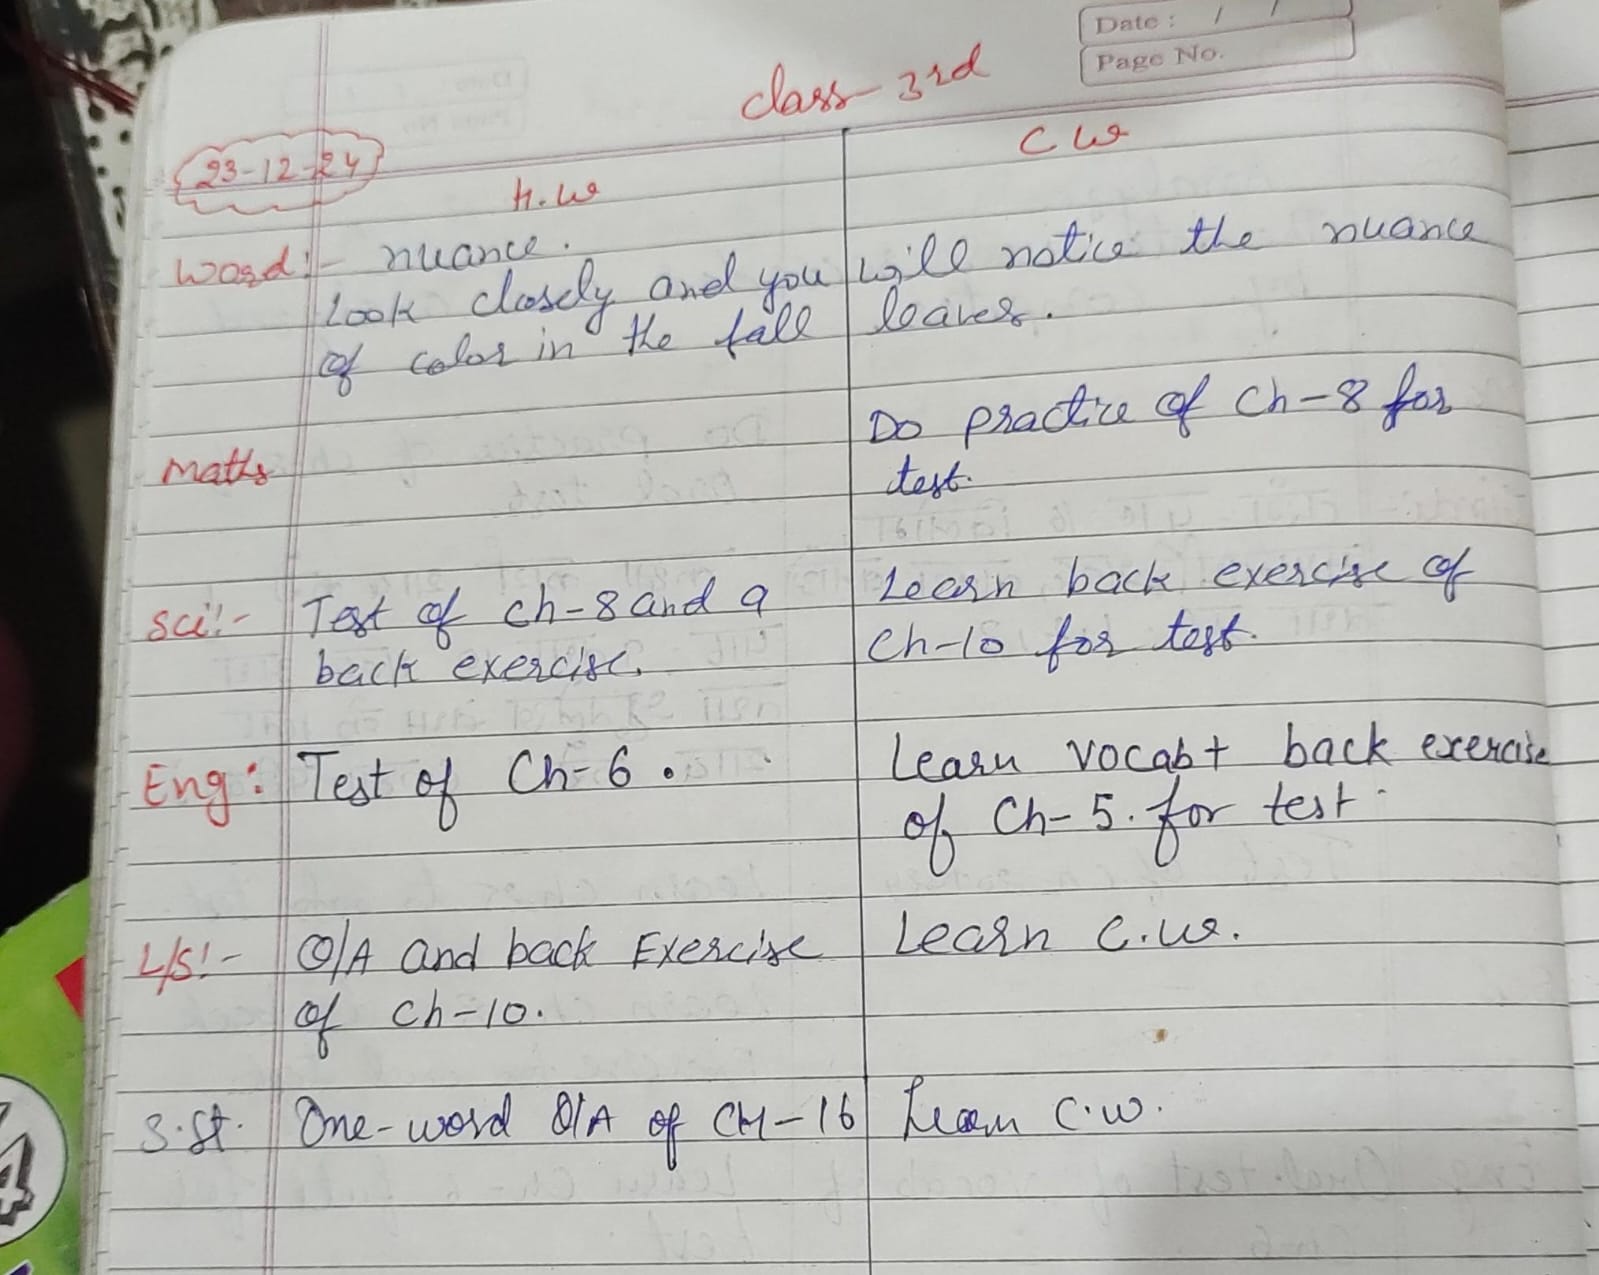 Date : / /
Page No.
Class - 3rd
23-12-24
H.W
C W
Word:- nuance.
Look closely and you will notice the nuance
of color in the fall leaves.
Maths
Do practice of Ch-8 for
test.
Sci:- Test of Ch-8 and 9
back exercise.
Learn back exercise of
Ch-10 for test.
Eng: Test of Ch-6.
Learn vocab+ back exercise
of Ch-5. for test.
L/S:- Q/A and back Exercise
of Ch-10.
Learn C.W.
S.St. One-word Q/A of CH-16
Learn C.W.
4